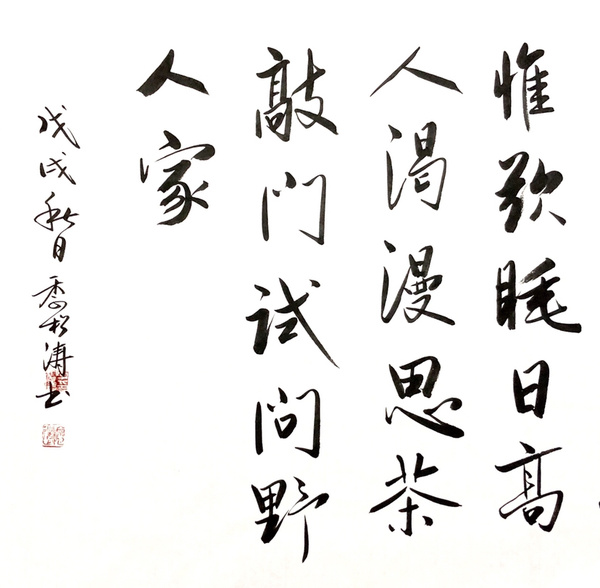 惟欲睡日高
人渴漫思茶
敲门试问野
人家
戊戌秋日季松涛书